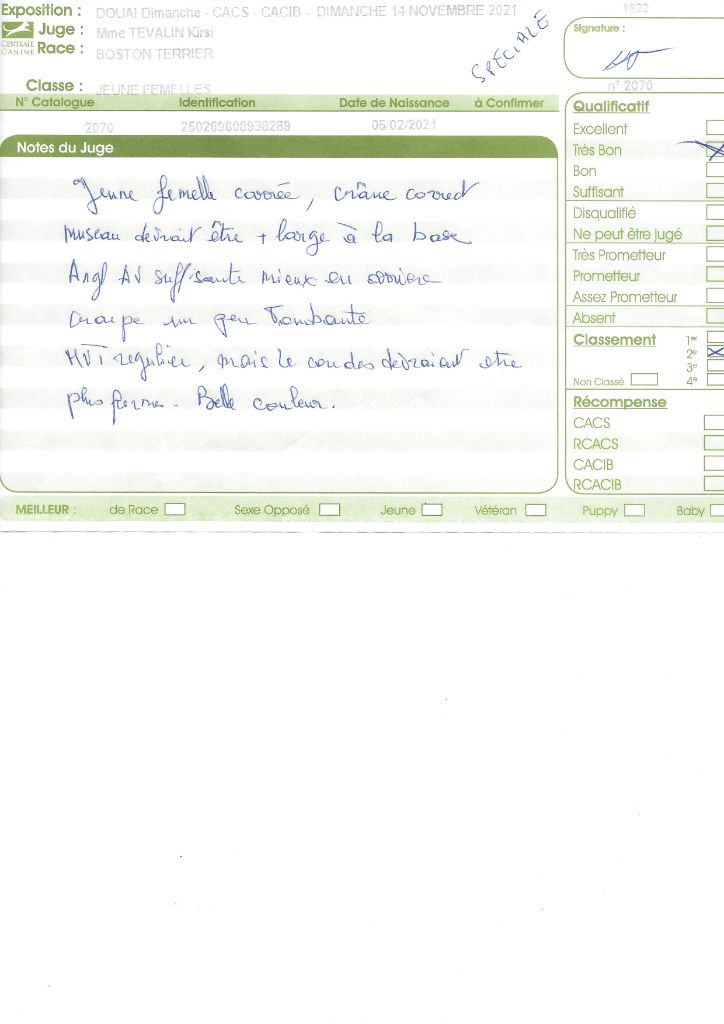 Exposition : DOUAI Dimanche - CACS - CACIB - DIMANCHE 14 NOVEMBRE 2021
1322
Juge : Mme TEVALIN Kirsi
CENTRALE CANINE
Race : BOSTON TERRIER
SPÉCIALE
Signature :
Classe : JEUNE FEMELLES
n° 2070
N° Catalogue Identification Date de Naissance à Confirmer
2070 250269608936289 05/02/2021
Notes du Juge
Jeune femelle carrée, crâne correct
museau devrait être + large à la base
Angl AV suffisante mieux en arrière
Croupe un peu Tombante
MVT regulier, mais le coudes devraient etre
plus ferme. Belle couleur.
Qualificatif
Excellent
Très Bon
Bon
Suffisant
Disqualifié
Ne peut être jugé
Très Prometteur
Prometteur
Assez Prometteur
Absent
Classement 1er
2e
3e
Non Classé 4e
Récompense
CACS
RCACS
CACIB
RCACIB
MEILLEUR : de Race Sexe Opposé Jeune Vétéran Puppy Baby